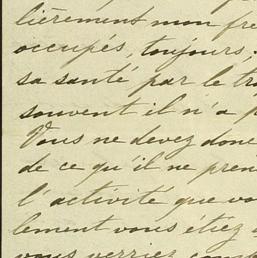 lièrement mon fre
occupés, toujours,
sa santé par le tra
souvent il n'a p
Vous ne devez donc
de ce qu'il ne pren
l'activité que vo
lement vous étiez
vous verriez com